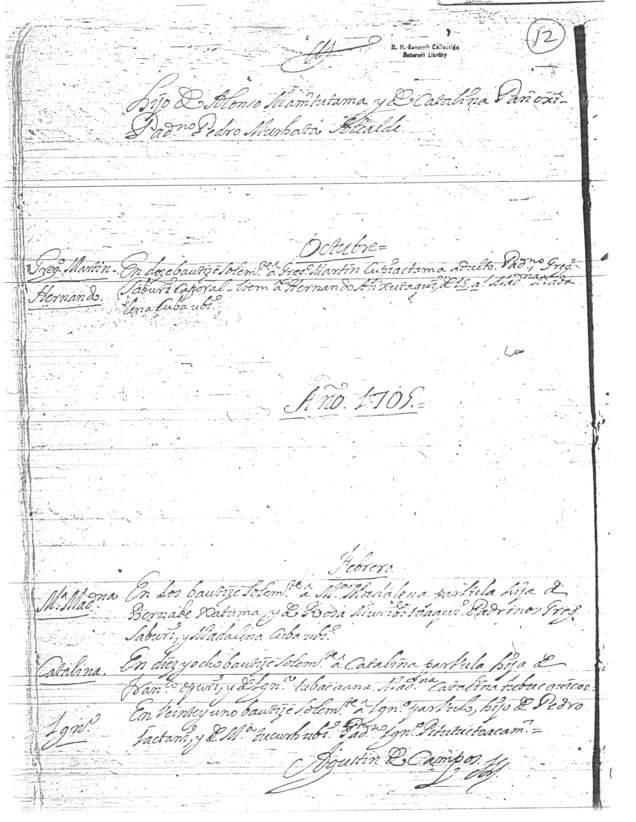 12
H. H. Bancroft Collection
Bancroft Library
Hijo de Alonso Mamtutama y de Catalina
Padno Pedro Murhata Alcalde.
Octubre=
Gregº Martin.
Hernando.
En doze bautize solemte â Gregº Martin adulto. Padno Gregº
Saburi Caporal. Item â Hernando de 15 aº Madna Mada
lena Cubaubiº
Año. 1705.=
Febrero.
Mª Madna
En dos bautize solemte â Mª Madalena parbula hija de
Bernabe Xatuma, y de Rosa Padrinos Gregº
Saburi, y Madalena Cubaubiº
Catalina.
En diez y ocho bautize solemte â Catalina parbula hija de
Franco opuri, y de Ignª tubacaana. Madna Catalina
Ignº
En veinte y uno bautize solemte â Ignº parbulo, hijo de Pedro
y de Mª Padno Ignº
Agustin de Campos